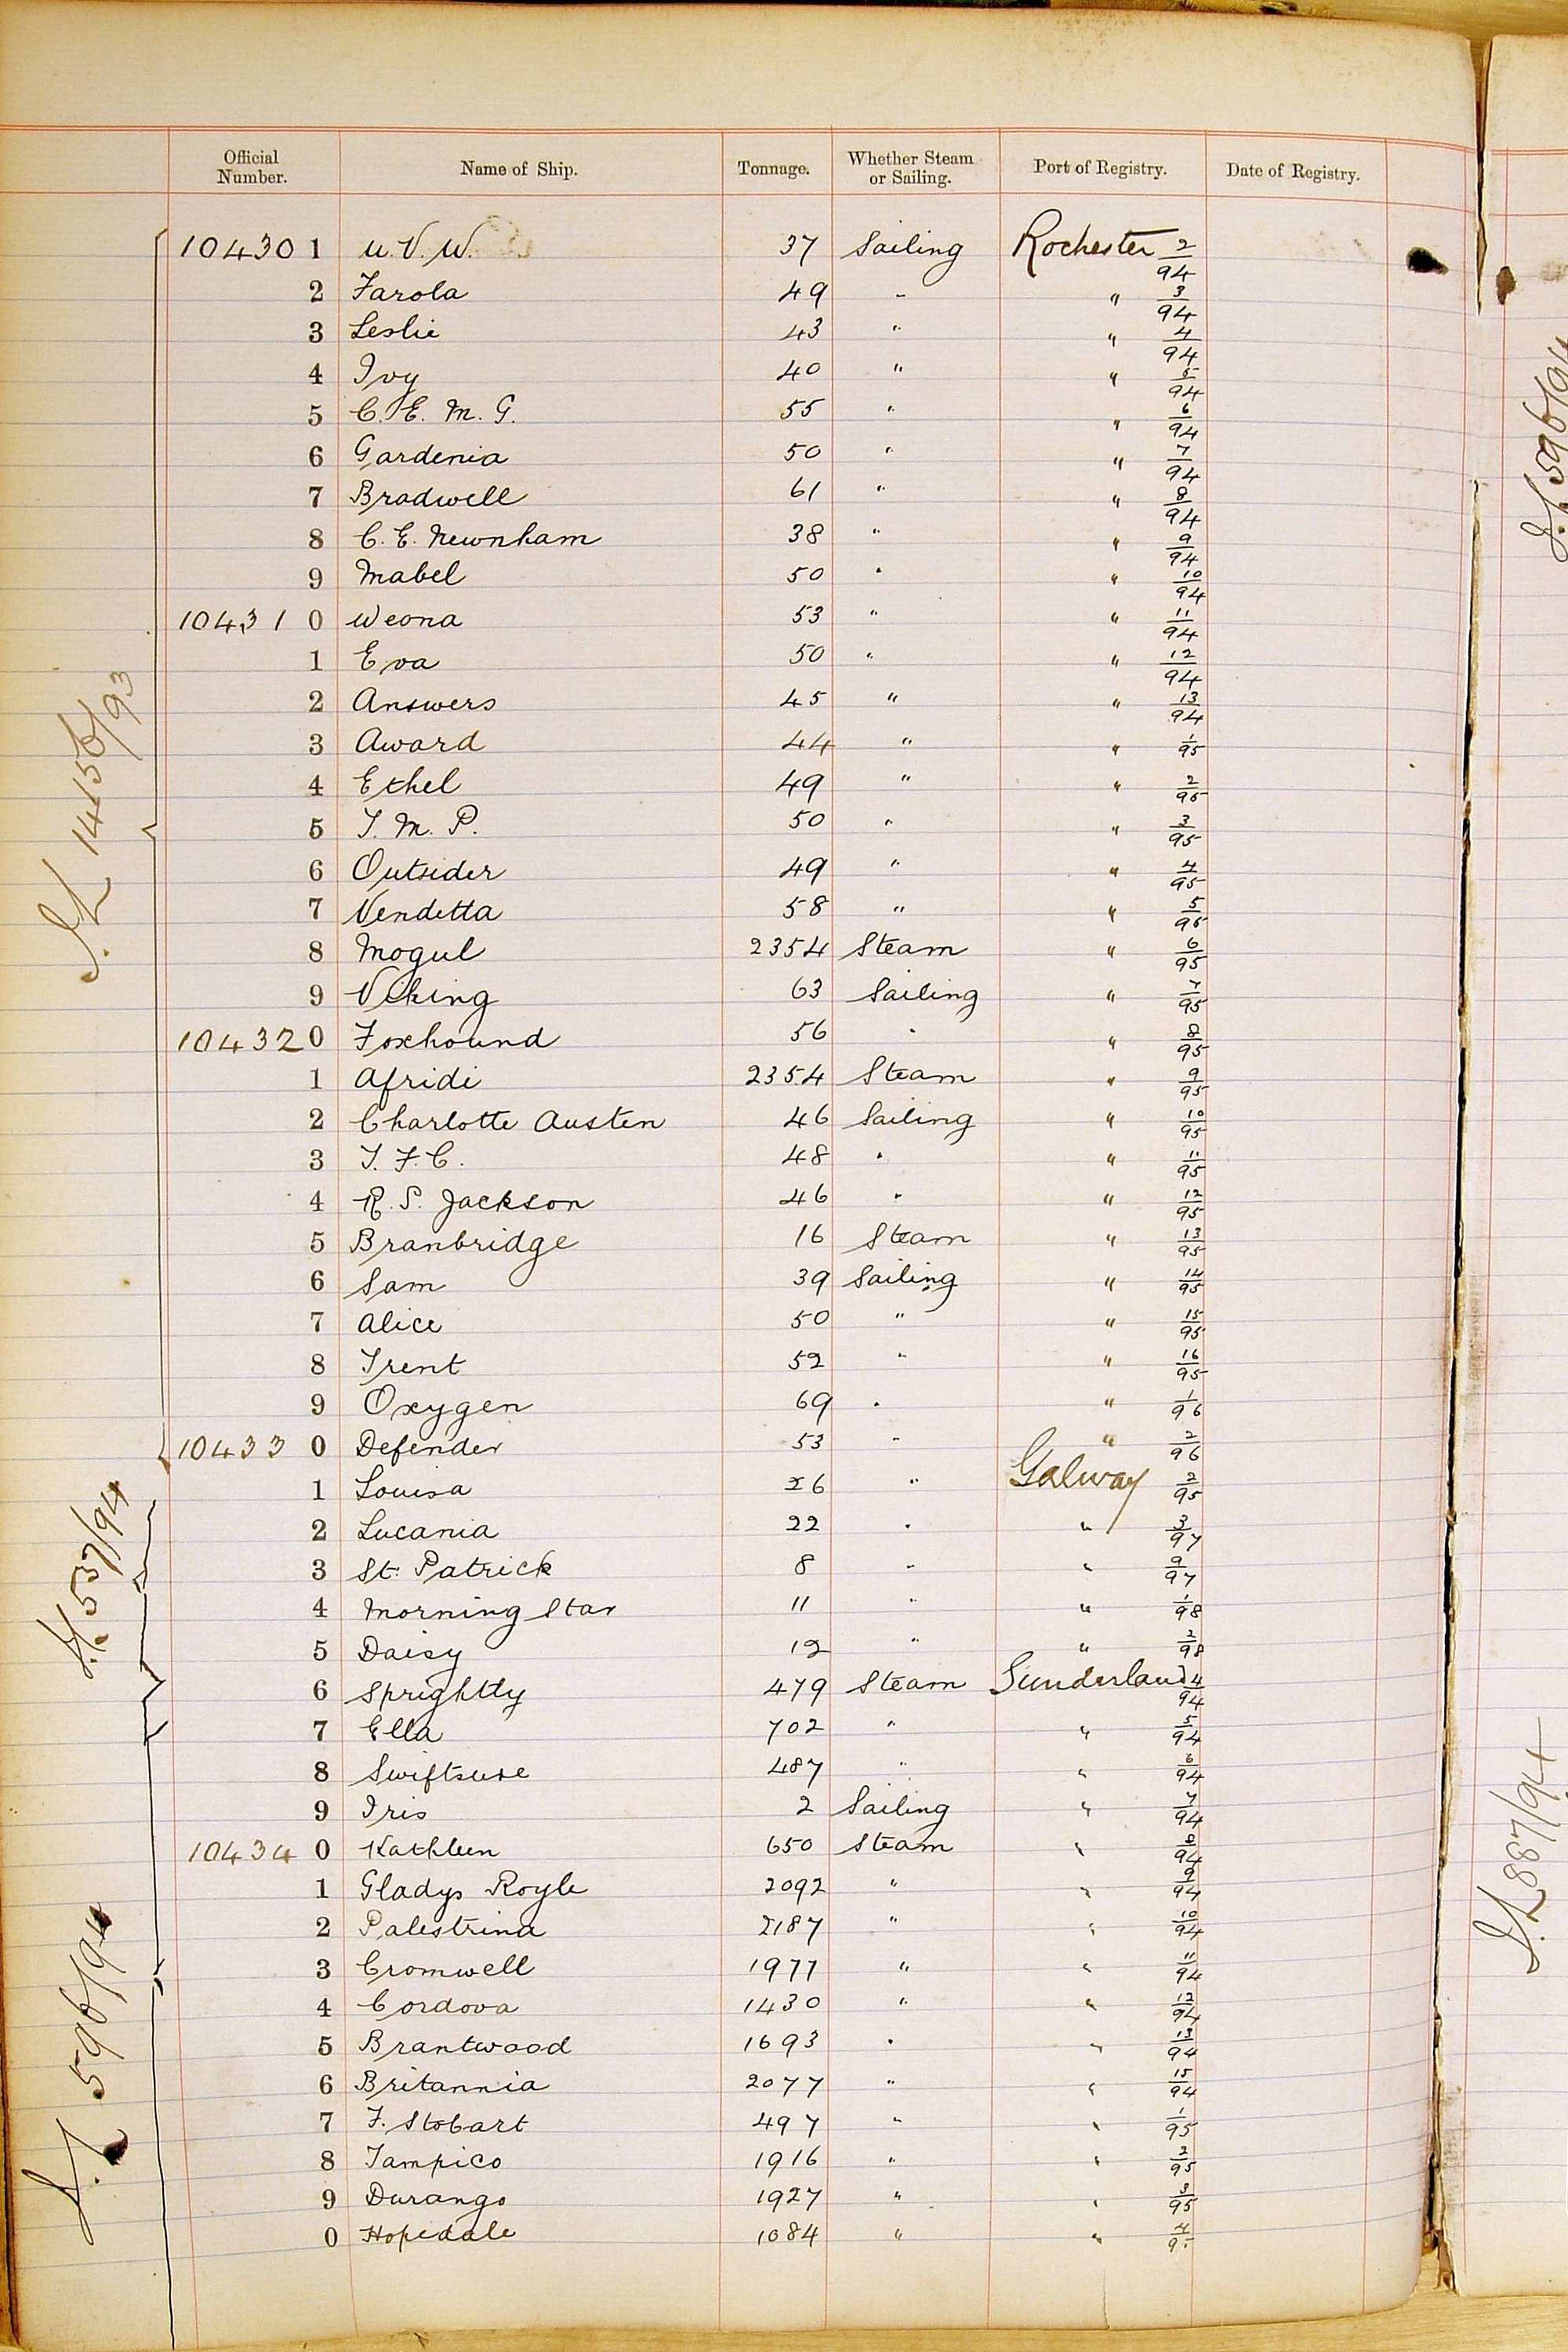 Official Number. Name of Ship. Tonnage. Whether Steam or Sailing. Port of Registry. Date of Registry.
104301 U.V.W. 37 Sailing Rochester 2/94
2 Farola 49 " " 3/94
3 Leslie 43 " " 4/94
4 Ivy 40 " " 5/94
5 C. E. M. G. 55 " " 6/94
6 Gardenia 50 " " 7/94
7 Bradwell 61 " " 8/94
8 C. E. Newnham 38 " " 9/94
9 Mabel 50 " " 10/94
104310 Weona 53 " " 11/94
1 Eva 50 " " 12/94
2 Answers 45 " " 13/94
3 Award 44 " " 1/95
4 Ethel 49 " " 2/95
5 T. M. P. 50 " " 3/95
6 Outsider 49 " " 4/95
7 Vendetta 58 " " 5/95
8 Mogul 2354 Steam " 6/95
9 Viking 63 Sailing " 7/95
104320 Foxhound 56 " " 8/95
1 Afridi 2354 Steam " 9/95
2 Charlotte Austen 46 Sailing " 10/95
3 T. F. C. 48 " " 11/95
4 R. S. Jackson 46 " " 12/95
5 Branbridge 16 Steam " 13/95
6 Sam 39 Sailing " 14/95
7 Alice 50 " " 15/95
8 Trent 52 " " 16/95
9 Oxygen 69 " " 1/96
104330 Defender 53 " " 2/96
1 Louisa 26 " Galway 2/95
2 Lucania 22 " " 3/97
3 St. Patrick 8 " " 9/97
4 Morning Star 11 " " 1/98
5 Daisy 12 " " 2/98
6 Sprightly 479 Steam Sunderland 4/94
7 Ella 702 " " 5/94
8 Swiftsure 487 " " 6/94
9 Iris 2 Sailing " 7/94
104340 Kathleen 650 Steam " 8/94
1 Gladys Royle 2092 " " 9/94
2 Palestrina 2187 " " 10/94
3 Cromwell 1977 " " 11/94
4 Cordova 1430 " " 12/94
5 Brantwood 1693 " " 13/94
6 Britannia 2077 " " 15/94
7 F. Stobart 497 " " 1/95
8 Tampico 1916 " " 2/95
9 Durango 1927 " " 3/95
0 Hopedale 1084 " " 4/9
14156/93
537/94
596/94
596/94
887/94